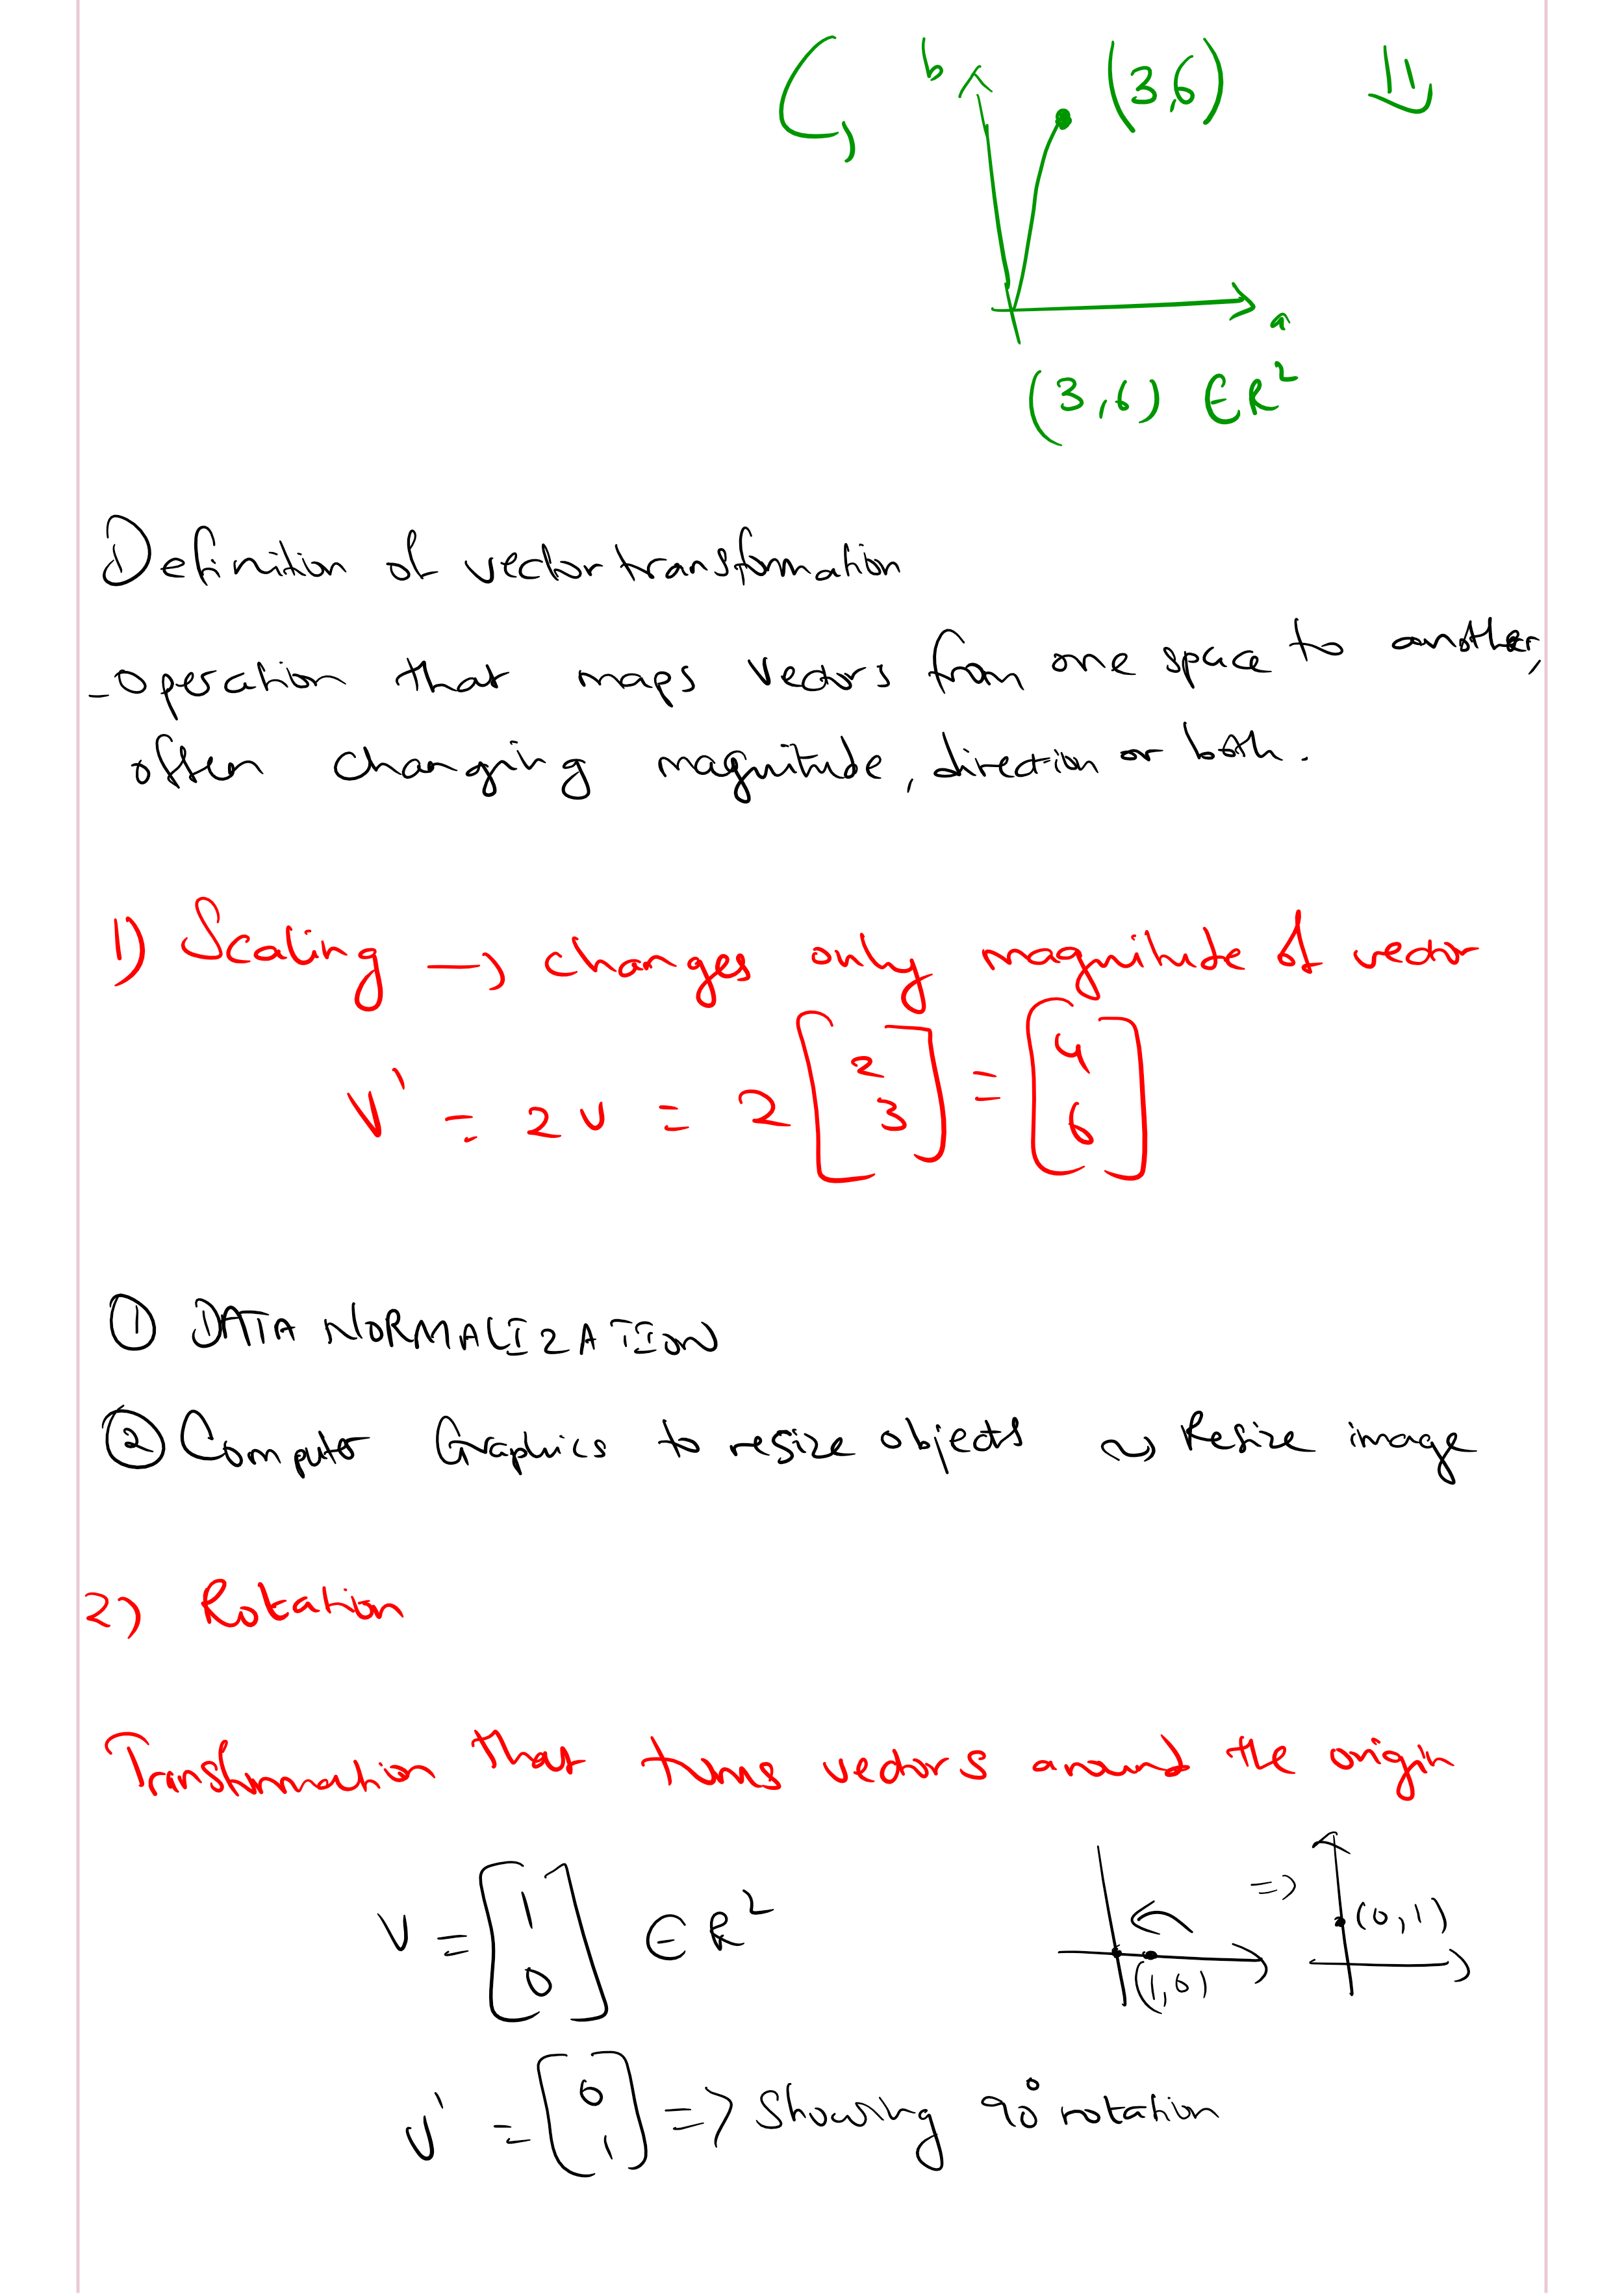 b (3,6)
a
(3,6) ∈ R²
Definition of vector transformation
- operation that maps vectors from one space to another,
often changing magnitude, direction or both.
1) Scaling → changes only magnitude of vector
V' = 2v = 2 [2 3] = [4 6]
① DATA NORMALIZATION
② Computer Graphics to resize objects ~> Resize image
2) Rotation
Transformation that turns vectors around the origin
V = [1 0] ∈ R²
(1,0) => (0,1)
V' = [0 1] => Showing 90° rotation